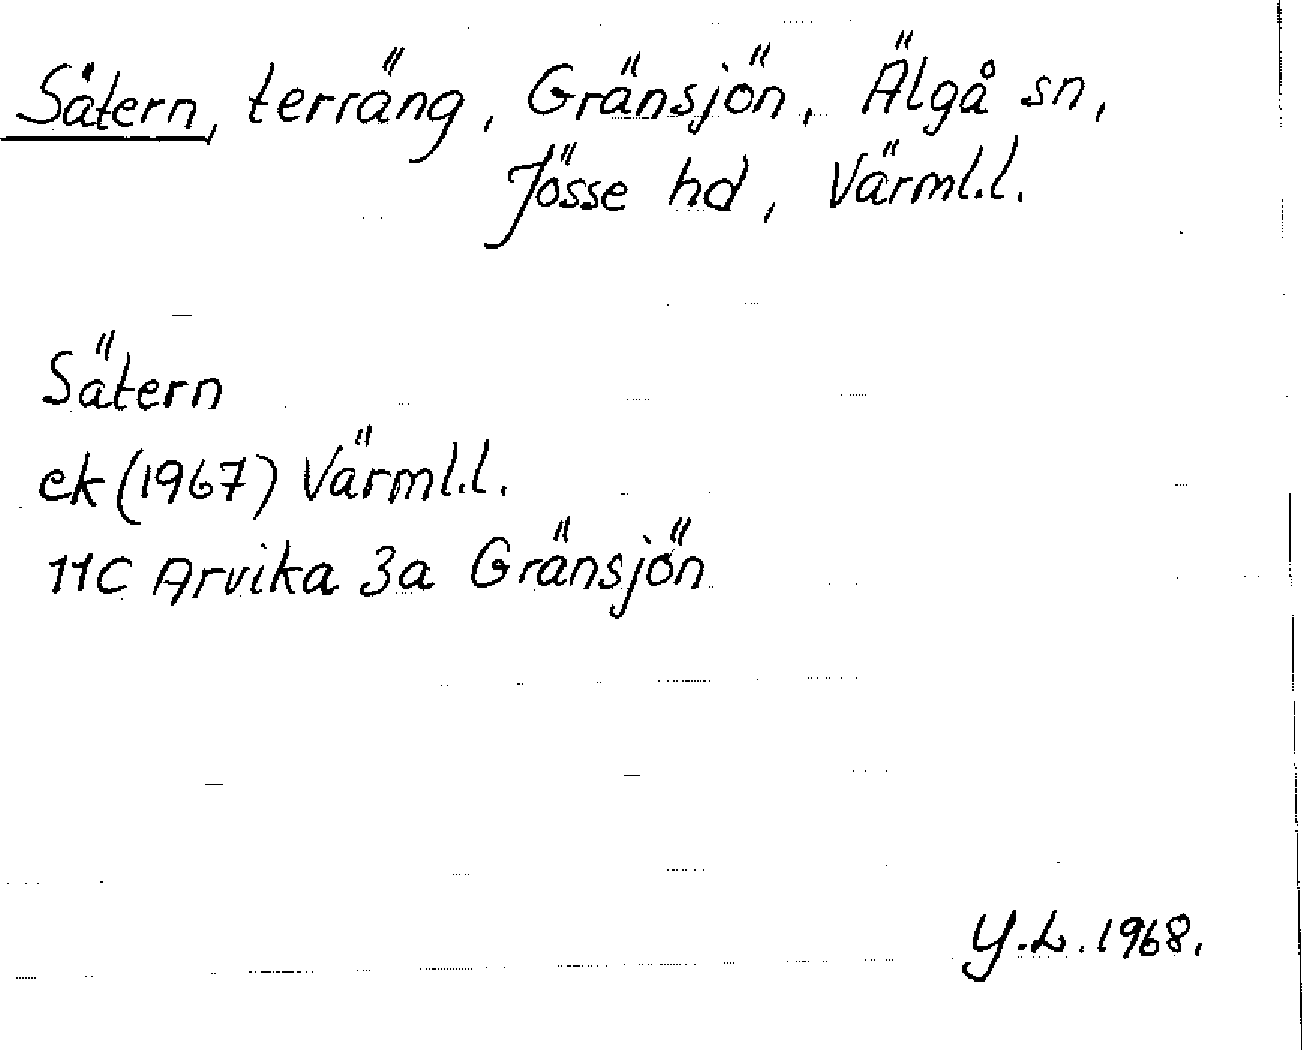 Sätern, terräng, Gränsjön, Älgå sn,
Jösse hd, Värml.l.
Sätern
ek (1967) Värml.l.
11C Arvika 3a Gränsjön
Y.L. 1968.